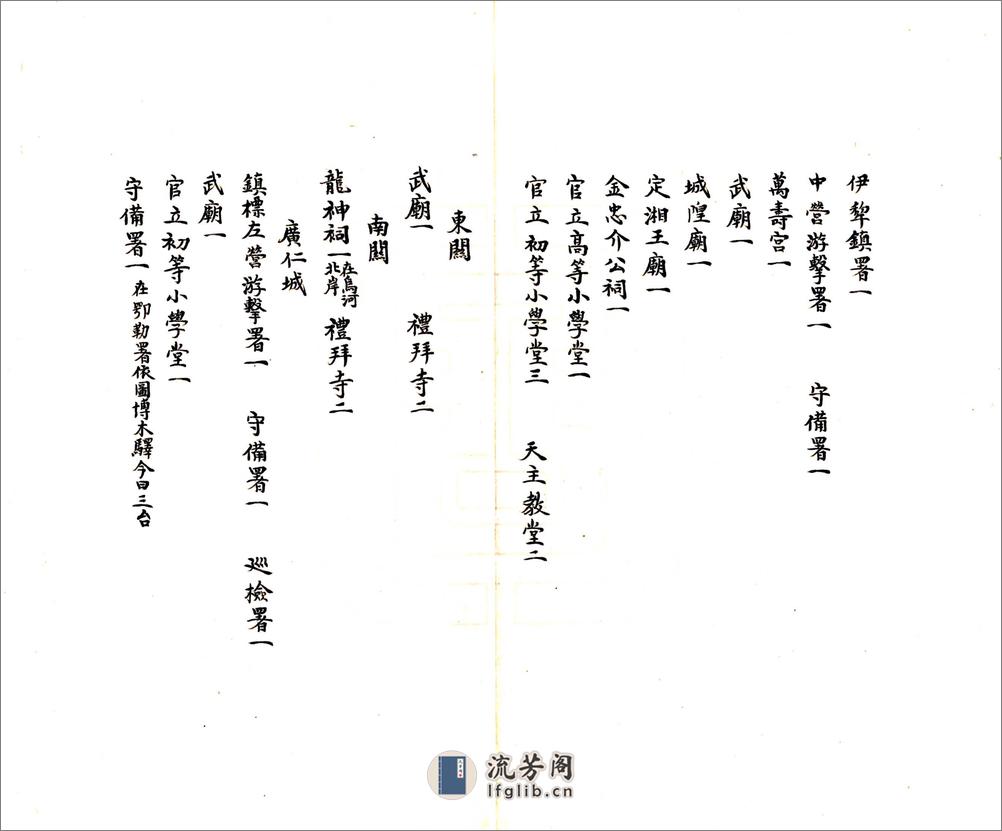 伊犂鎮署一
中營游擊署一　守備署一
萬壽宮一
武廟一
城隍廟一
定湘王廟一
金忠介公祠一
官立高等小學堂一
官立初等小學堂三　天主教堂二
東關
武廟一　禮拜寺二
南關
龍神祠一在烏河北岸　禮拜寺二
廣仁城
鎮標左營游擊署一　守備署一　巡檢署一
武廟一
官立初等小學堂一
守備署一在鄂勒署依圖博木驛今曰三台
流芳阁
lfglib.cn